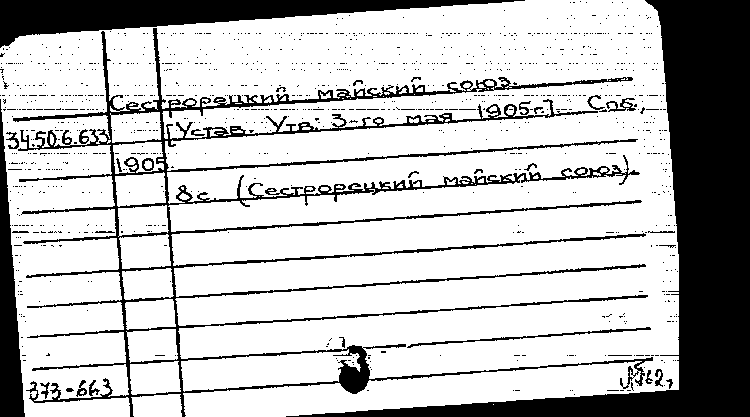 Сестрорецкий майский союз.
34.50.6.633 [Устав. Утв: 3-го мая 1905г.]. Спб,
1905.
8с. (Сестрорецкий майский союз).
373-663